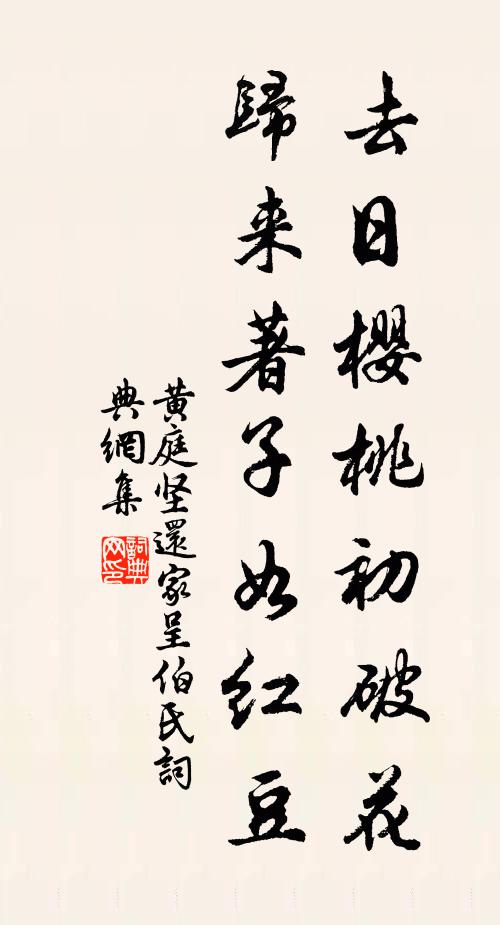 去日櫻桃初破花
歸来著子如红豆
黄庭坚還家呈伯氏詞
典網集
詞典网印